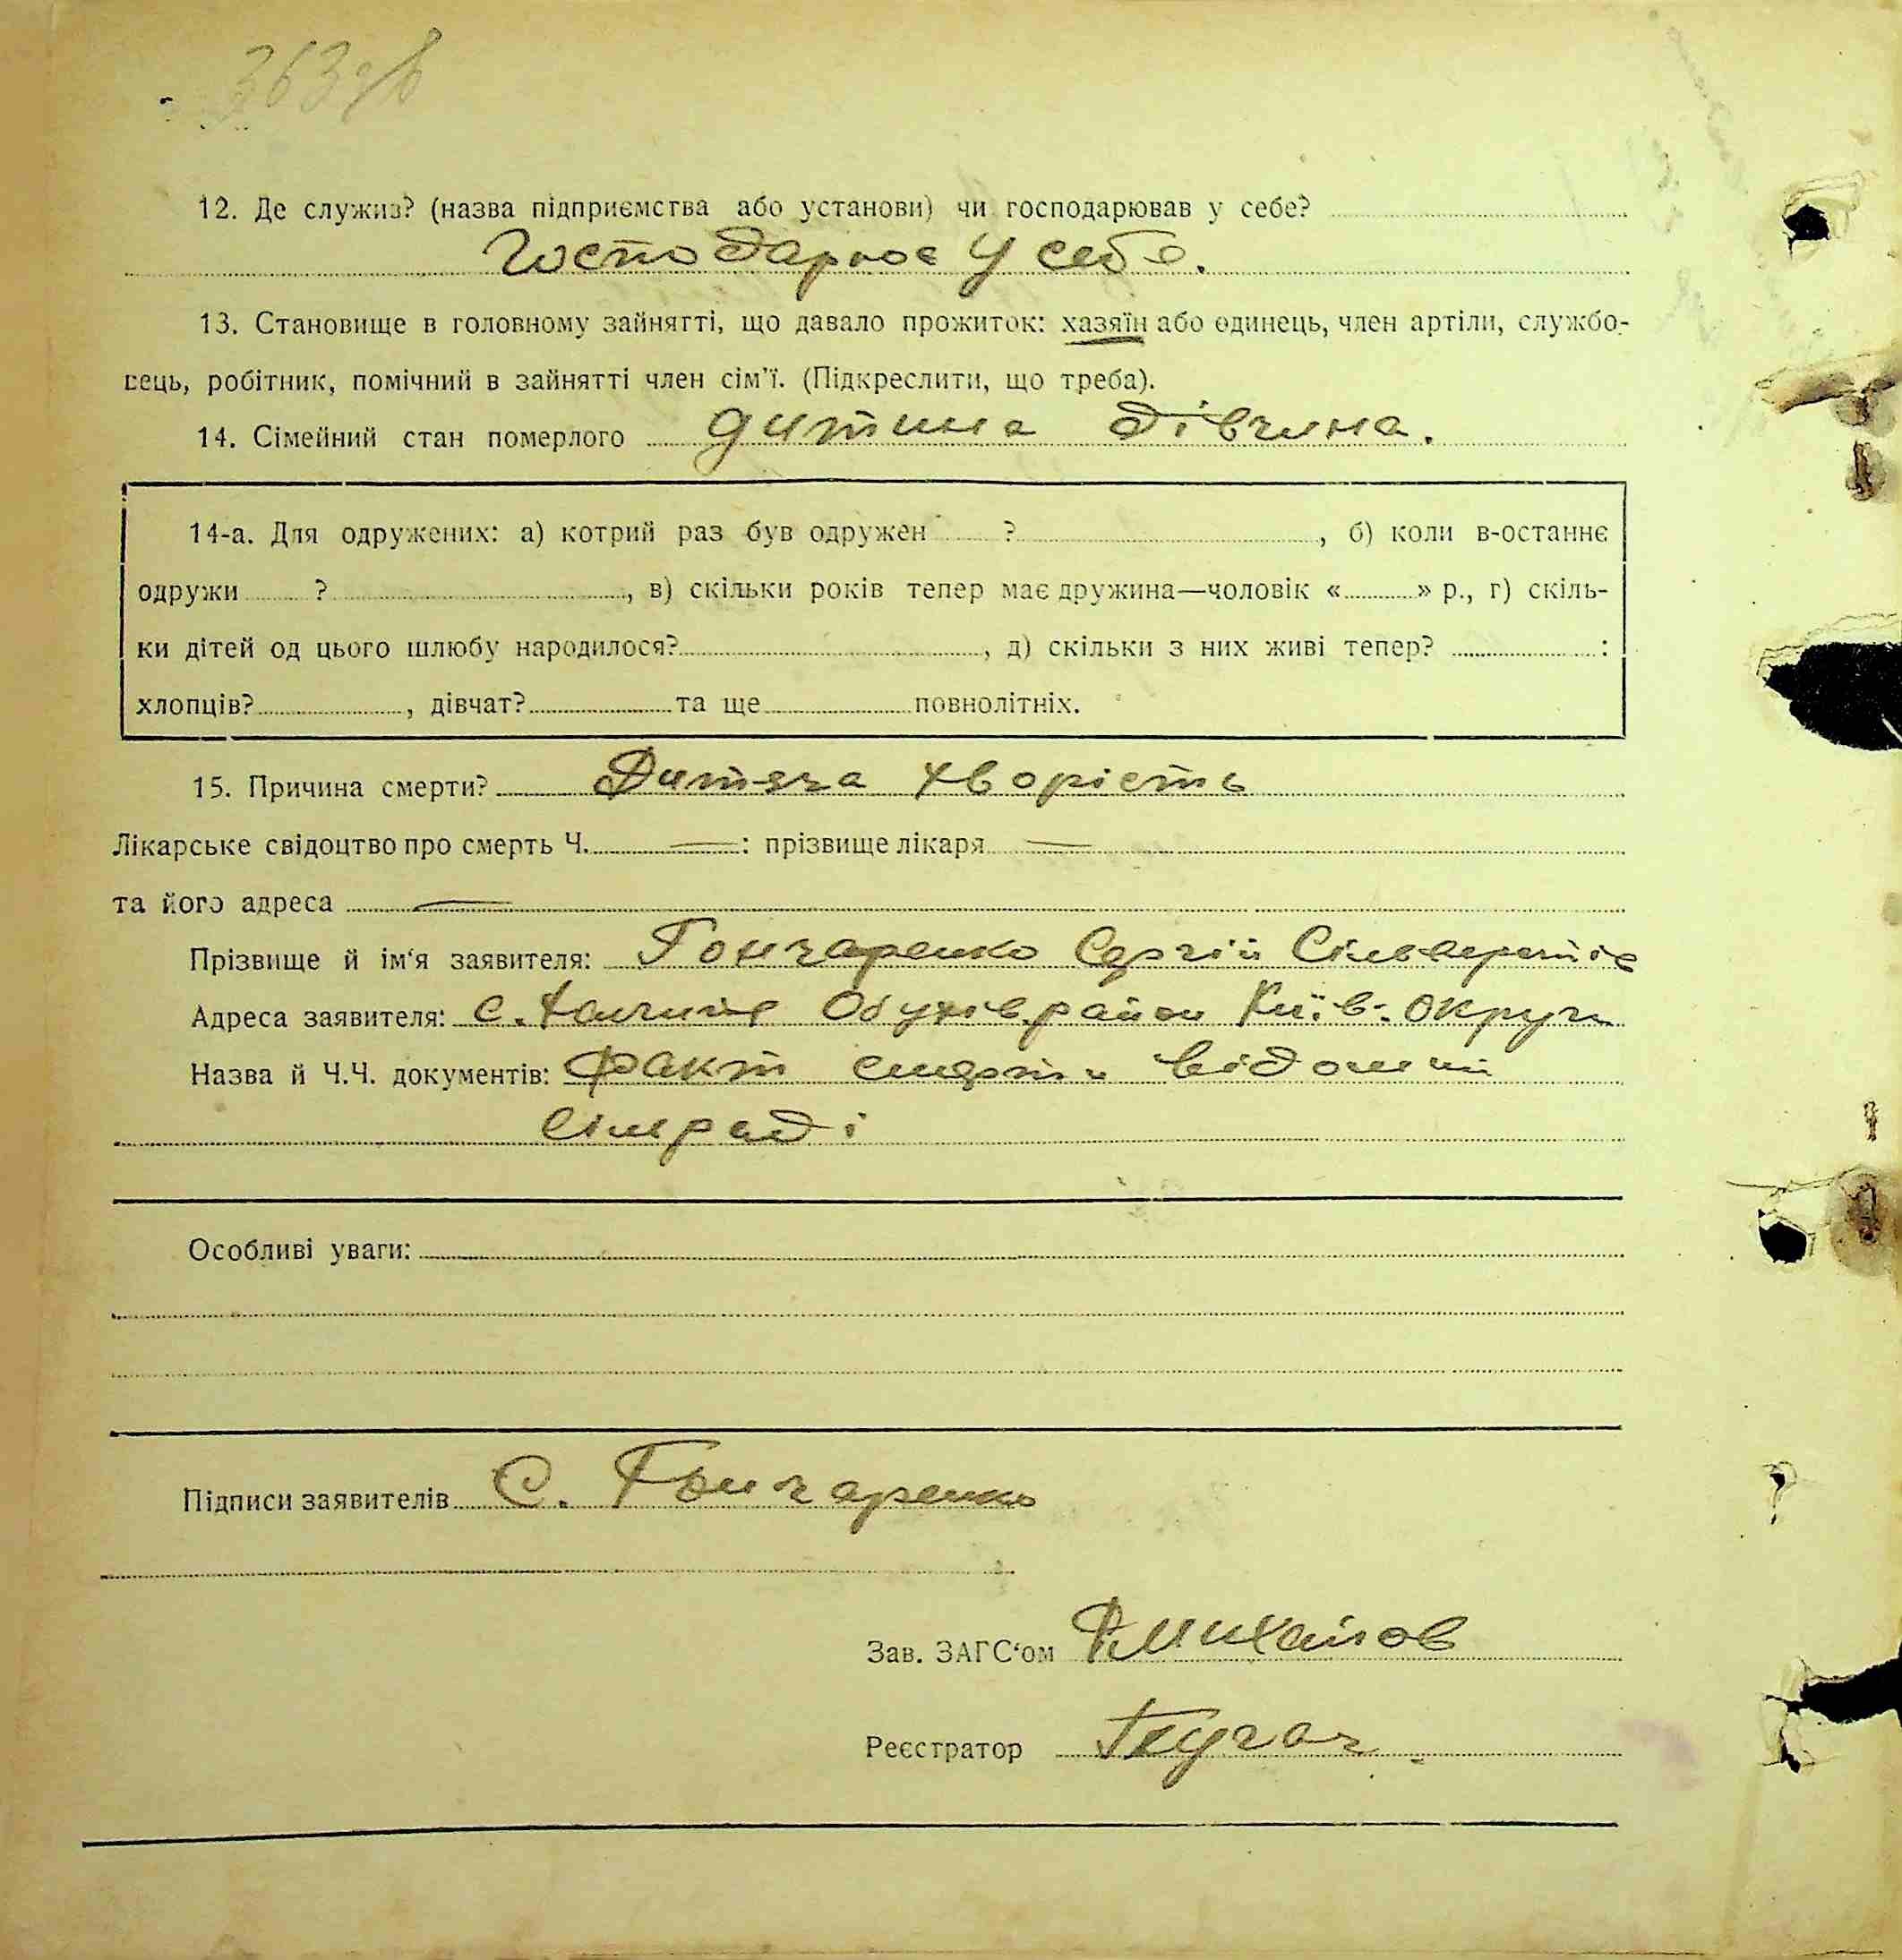 363 зв
12. Де служив? (назва підприємства або установи) чи господарював у себе?
Господарює у себе.
13. Становище в головному зайнятті, що давало прожиток: хазяїн або одинець, член артіли, службо-
вець, робітник, помічний в зайнятті член сім'ї. (Підкреслити, що треба).
14. Сімейний стан померлого дитина дівчина.
14-а. Для одружених: а) котрий раз був одружен ?, б) коли в-останнє
одружи ?, в) скільки років тепер має дружина—чоловік « » р., г) скіль-
ки дітей од цього шлюбу народилося?, д) скільки з них живі тепер? :
хлопців?, дівчат? та ще повнолітніх.
15. Причина смерти? Дитяча хворість
Лікарське свідоцтво про смерть Ч. — : прізвище лікаря —
та його адреса —
Прізвище й ім'я заявителя: Гончаренко Сергій
Адреса заявителя: с. Обухів. район Київ. округи
Назва й Ч.Ч. документів: Факт смерти відомий
сільраді
Особливі уваги:
Підписи заявителів С. Гончаренко
Зав. ЗАГС'ом
Реєстратор